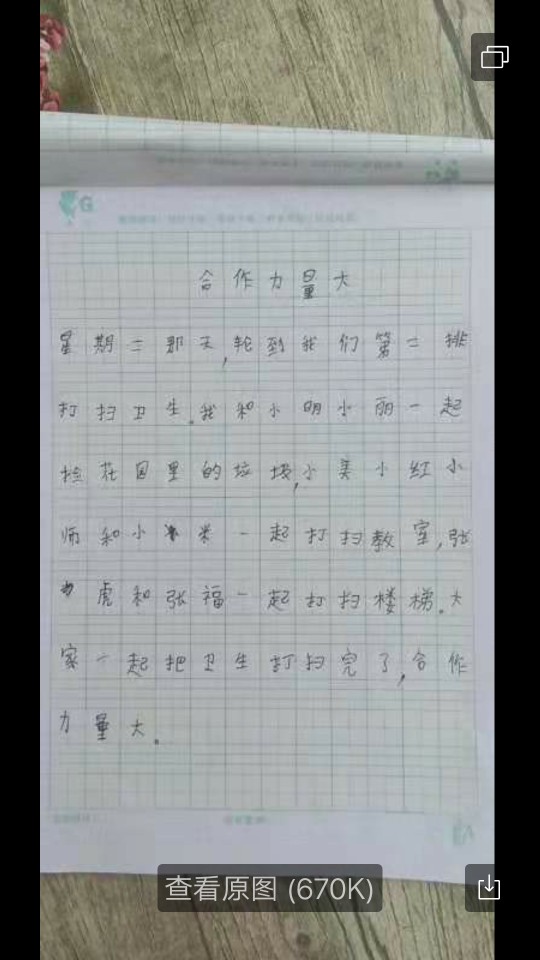 合作力量大
星期二那天,轮到我们第二排
打扫卫生。我和小明小丽一起
捡花园里的垃圾,小美小红小
师和小米一起打扫教室,张
虎和张福一起打扫楼梯。大
家一起把卫生打扫完了,合作
力量大。
查看原图 (670K)